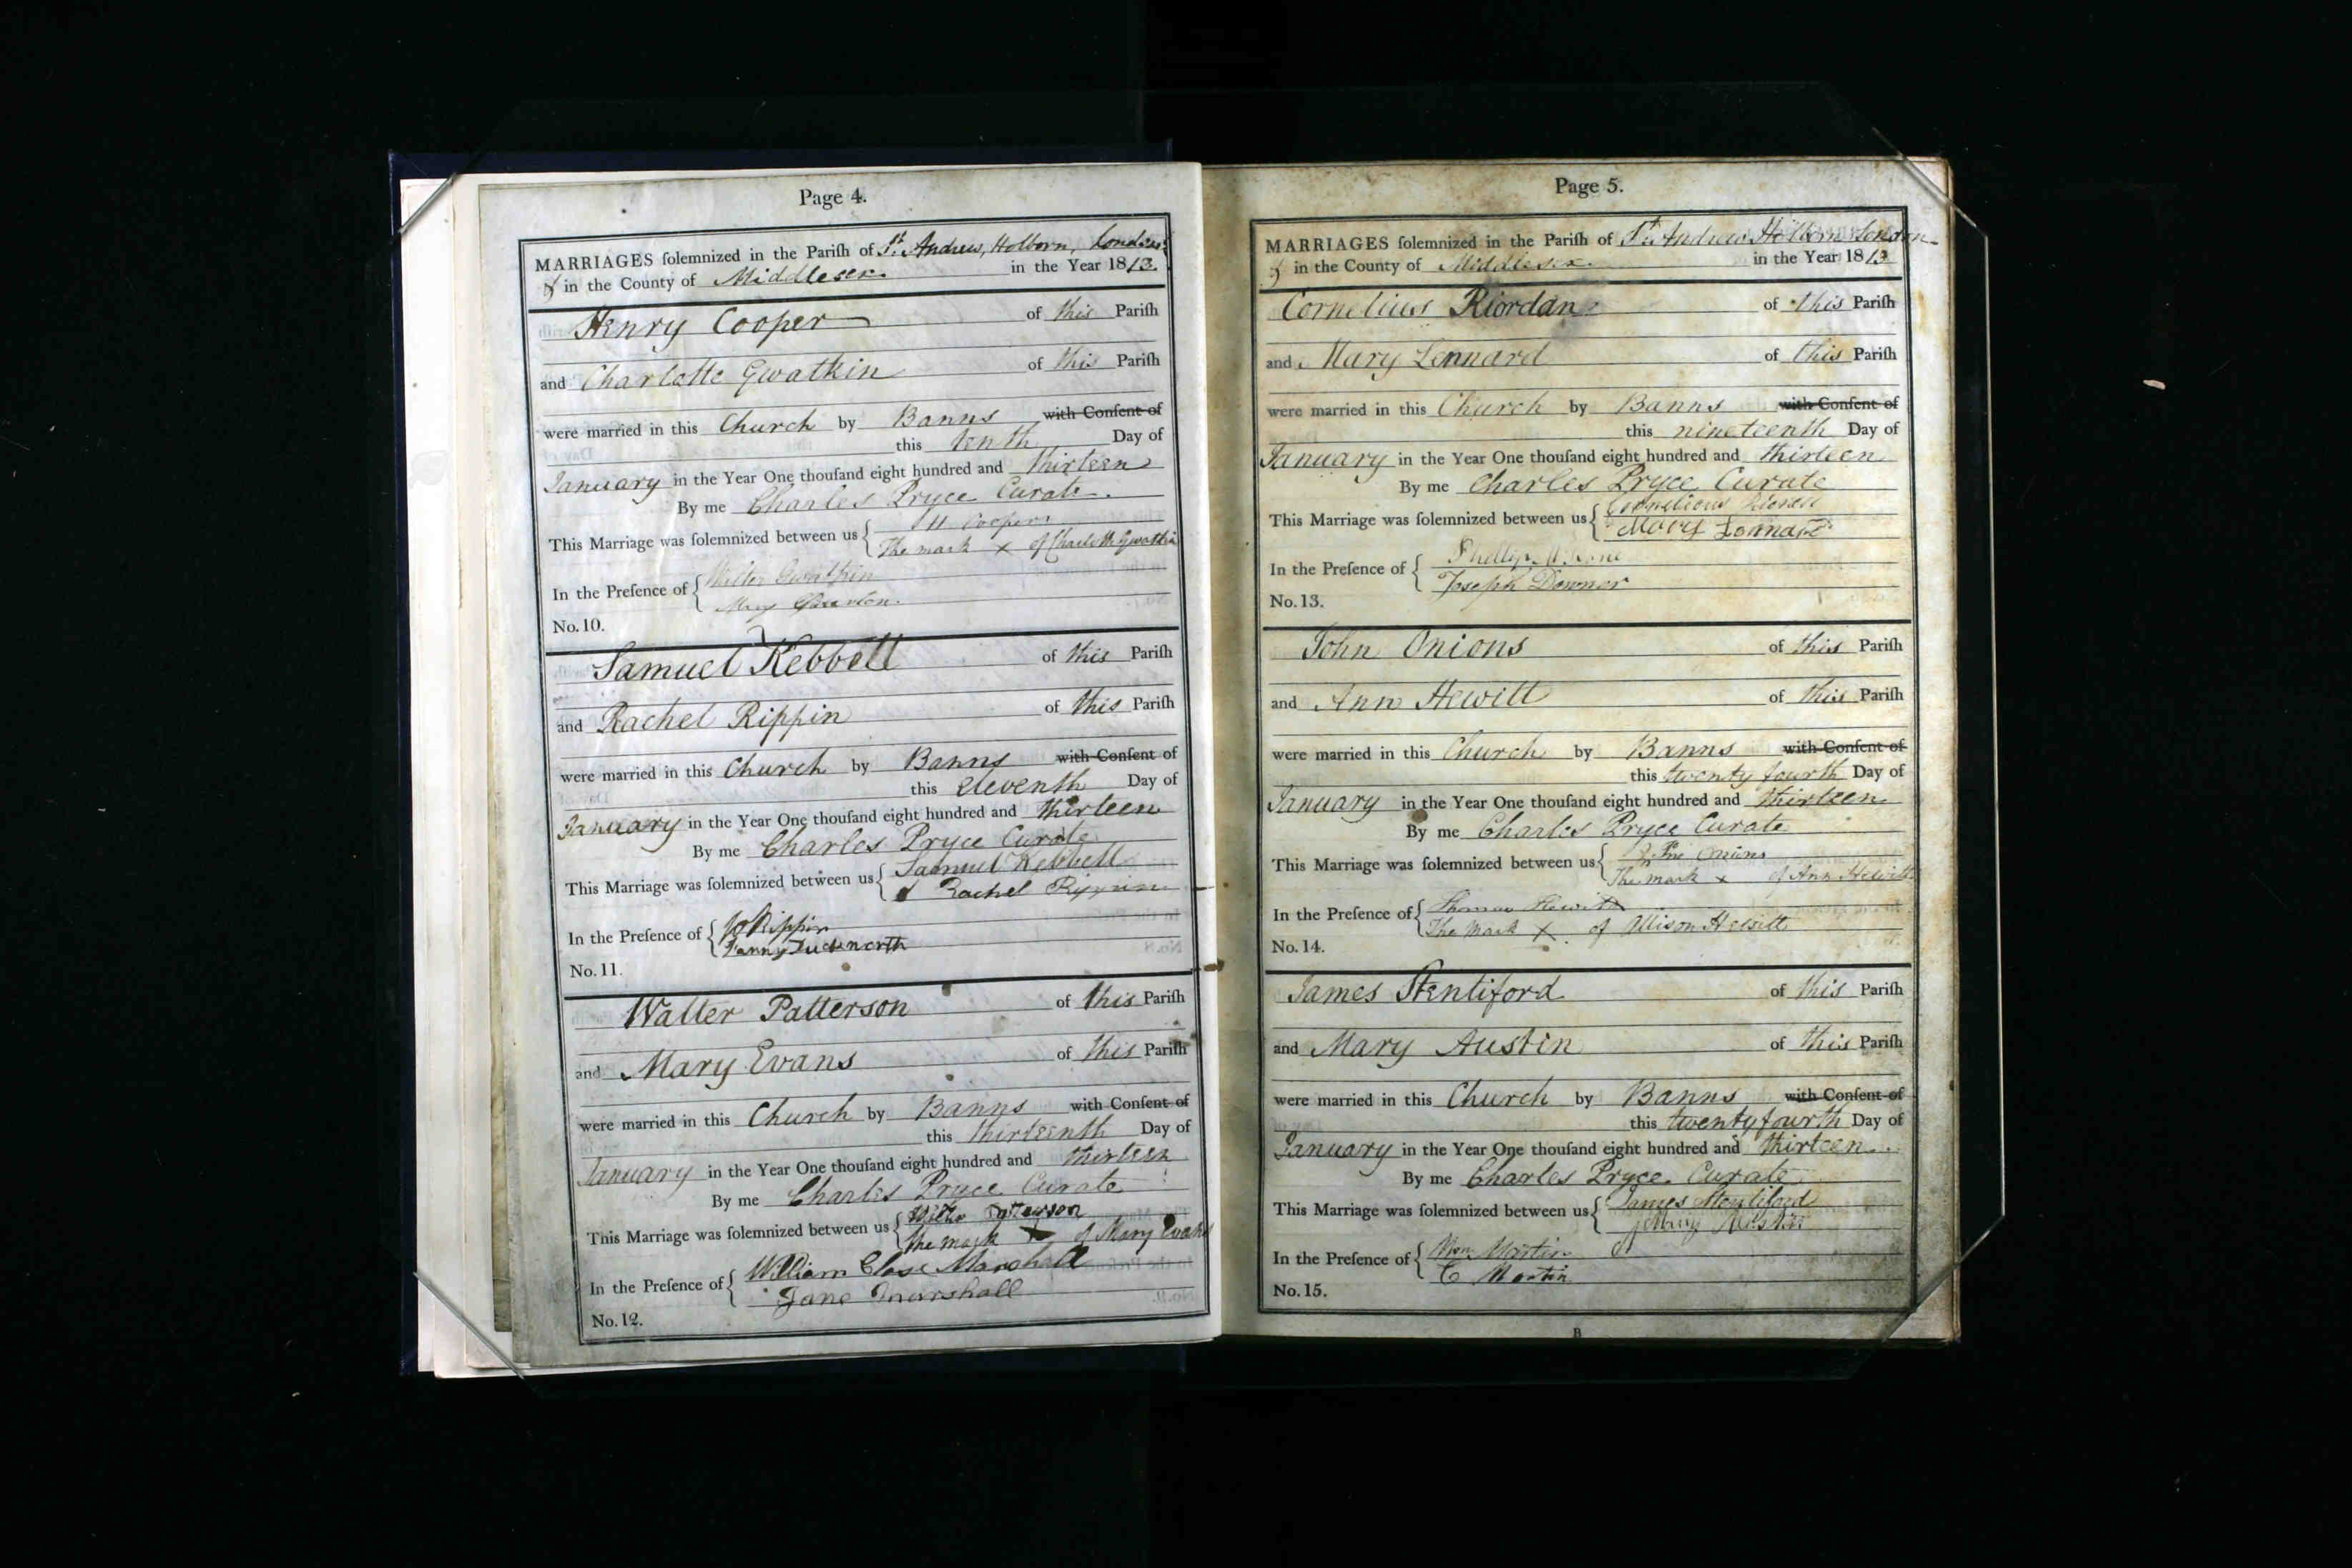 Page 4.
MARRIAGES ſolemnized in the Pariſh of St. Andrew, Holborn, London
& in the County of Middlesex. in the Year 1813.
Henry Cooper of this Pariſh
and Charlotte Gwatkin of this Pariſh
were married in this Church by Banns with Conſent of
this tenth Day of
January in the Year One thouſand eight hundred and thirteen
By me Charles Pryce Curate.
This Marriage was ſolemnized between us H Cooper
The mark x of Charlotte Gwatkin
In the Preſence of Walter Gwatkin
Mary
No. 10.
Samuel Kebbell of this Pariſh
and Rachel Rippin of this Pariſh
were married in this Church by Banns with Conſent of
this eleventh Day of
January in the Year One thouſand eight hundred and thirteen
By me Charles Pryce Curate
This Marriage was ſolemnized between us Samuel Kebbell
Rachel Rippin
In the Preſence of Rippin
Fanny
No. 11.
Walter Patterson of this Pariſh
and Mary Evans of this Pariſh
were married in this Church by Banns with Conſent of
this thirteenth Day of
January in the Year One thouſand eight hundred and thirteen
By me Charles Pryce Curate
This Marriage was ſolemnized between us
The mark x of Mary Evans
In the Preſence of William Close Marshall
Jane Marshall
No. 12.
Page 5.
MARRIAGES ſolemnized in the Pariſh of St. Andrew Holborn London
& in the County of Middlesex. in the Year 1813
Cornelius Riordan of this Pariſh
and Mary Lennard of this Pariſh
were married in this Church by Banns with Conſent of
this nineteenth Day of
January in the Year One thouſand eight hundred and thirteen
By me Charles Pryce Curate
This Marriage was ſolemnized between us Cornelious
Mary
In the Preſence of
Joseph Downer
No. 13.
John Onions of this Pariſh
and Ann Hewitt of this Pariſh
were married in this Church by Banns with Conſent of
this twenty fourth Day of
January in the Year One thouſand eight hundred and thirteen
By me Charles Pryce Curate
This Marriage was ſolemnized between us Onions
The mark x of Ann Hewitt
In the Preſence of Thomas Hewitt
The Mark X of Allison Hewitt
No. 14.
James Stentiford of this Pariſh
and Mary Austin of this Pariſh
were married in this Church by Banns with Conſent of
this twenty fourth Day of
January in the Year One thouſand eight hundred and thirteen.
By me Charles Pryce Curate
This Marriage was ſolemnized between us James Stentiford
Mary Austin
In the Preſence of Wm Martin
C Martin
No. 15.
B